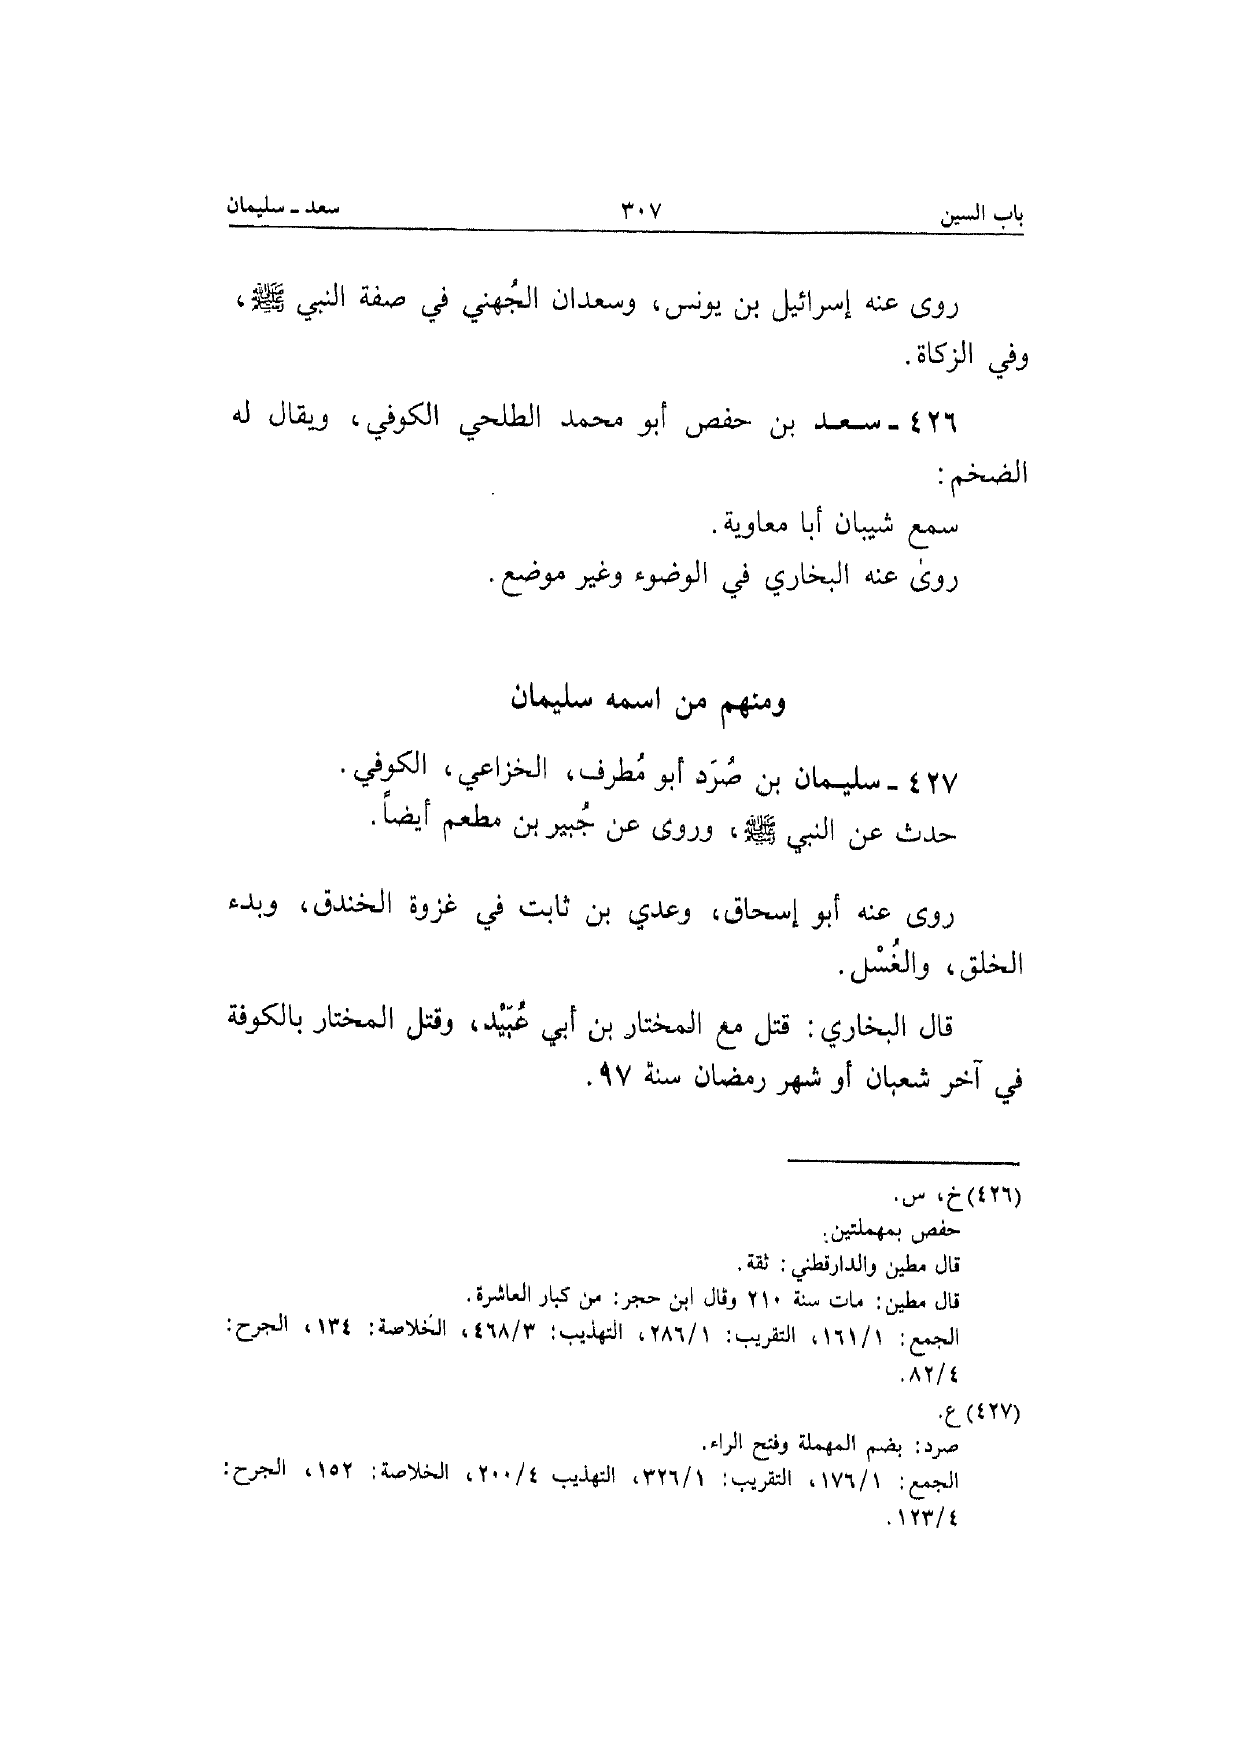 باب السين ٣٠٧ سعد ـ سليمان
روى عنه إسرائيل بن يونس، وسعدان الجُهني في صفة النبي ﷺ،
وفي الزكاة.
٤٢٦ ـ سعد بن حفص أبو محمد الطلحي الكوفي، ويقال له
الضخم:
سمع شيبان أبا معاوية.
روىٰ عنه البخاري في الوضوء وغير موضع.
ومنهم من اسمه سليمان
٤٢٧ ـ سليمان بن صُرَد أبو مُطرف، الخزاعي، الكوفي.
حدث عن النبي ﷺ، وروى عن جُبير بن مطعم أيضاً.
روى عنه أبو إسحاق، وعدي بن ثابت في غزوة الخندق، وبدء
الخلق، والغُسْل.
قال البخاري: قتل مع المختار بن أبي عُبَيْد، وقتل المختار بالكوفة
في آخر شعبان أو شهر رمضان سنة ٩٧.
(٤٢٦) خ، س.
حفص بمهملتين.
قال مطين والدارقطني: ثقة.
قال مطين: مات سنة ٢١٠ وقال ابن حجر: من كبار العاشرة.
الجمع: ١/‏١٦١، التقريب: ١/‏٢٨٦، التهذيب: ٣/‏٤٦٨، الخلاصة: ١٣٤، الجرح:
٤/‏٨٢.
(٤٢٧) ع.
صرد: بضم المهملة وفتح الراء.
الجمع: ١/‏١٧٦، التقريب: ١/‏٣٢٦، التهذيب ٤/‏٢٠٠، الخلاصة: ١٥٢، الجرح:
٤/‏١٢٣.